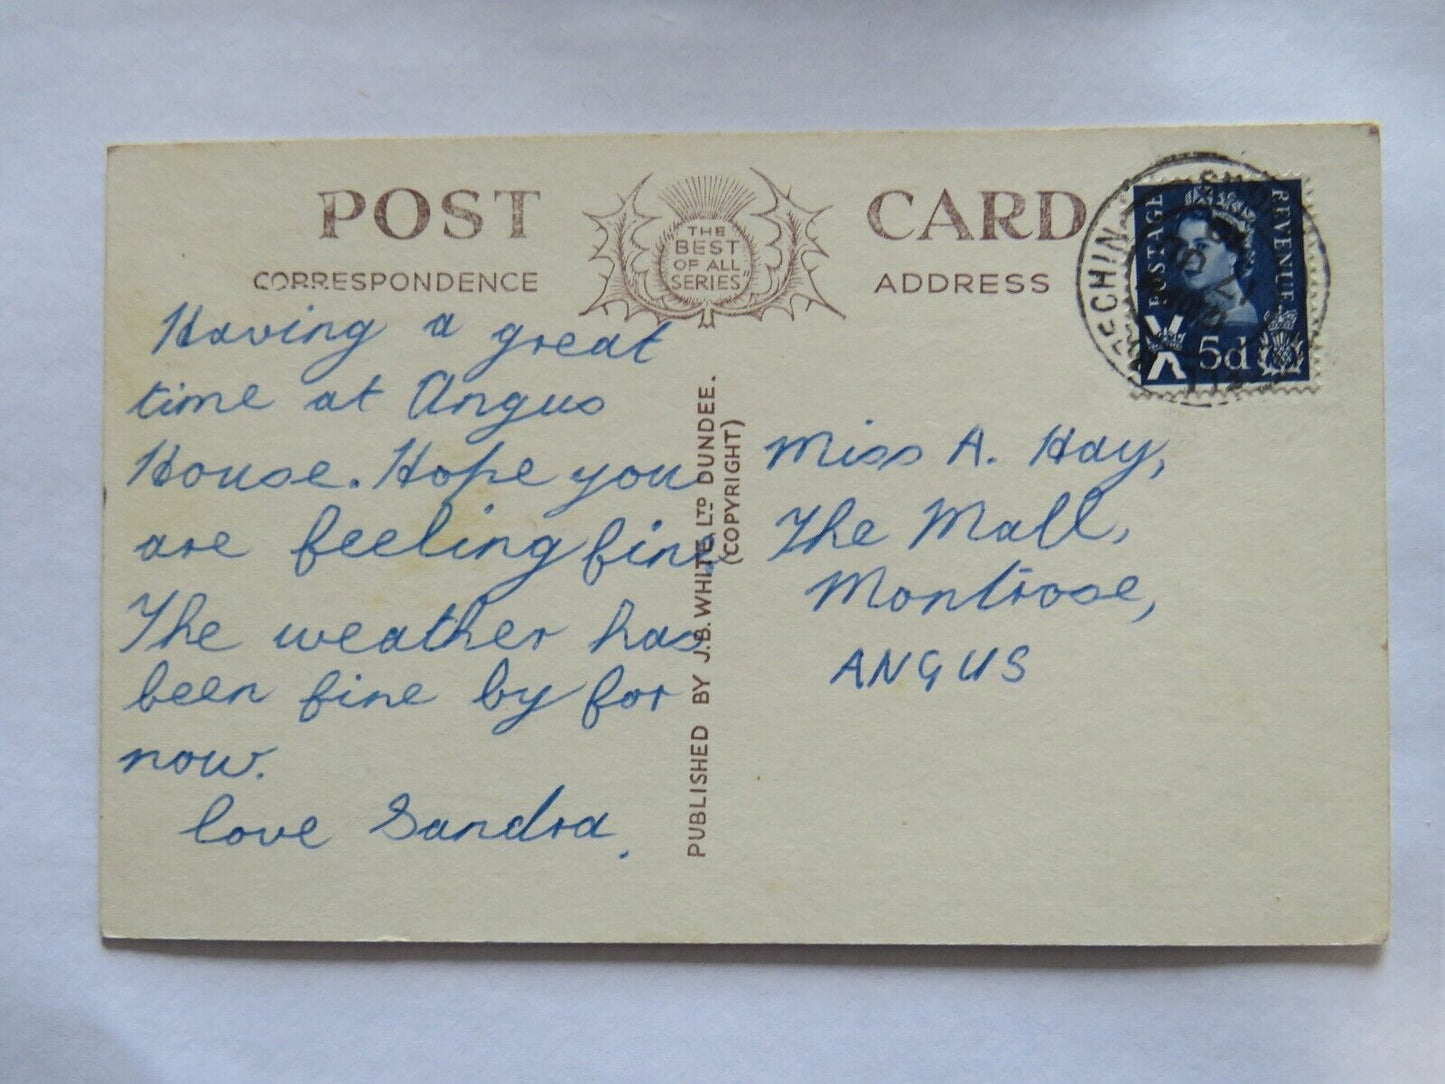 POST CARD
THE
BEST
OF ALL
SERIES"
CORRESPONDENCE
ADDRESS
Having a great
time at Angus
House. Hope you
are feeling fine
The weather has
been fine by for
now.
love Sandra.
PUBLISHED BY J.B. WHITE, LTD DUNDEE.
(COPYRIGHT)
POSTAGE
REVENUE
5d
BRECHIN
ANGUS
Miss A. Hay,
The Mall,
Montrose,
ANGUS